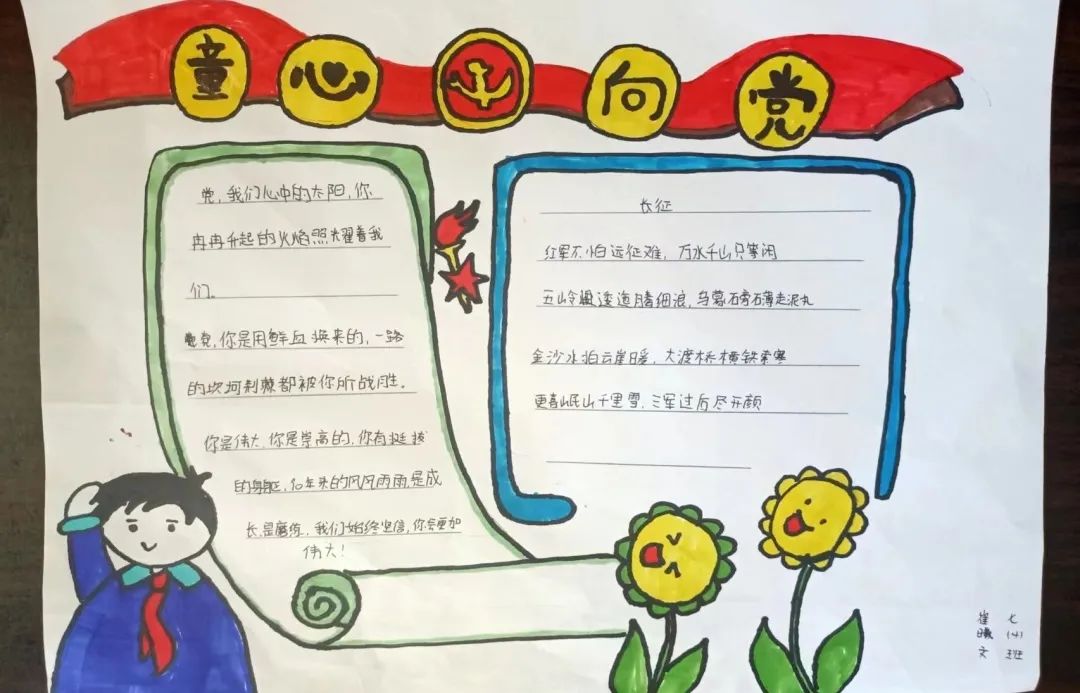 童心向党
党，我们心中的太阳，你
冉冉升起的火焰照耀着我
们。
党，你是用鲜血换来的，一路
的坎坷荆棘都被你所战胜。
你是伟大，你是崇高的，你有挺拔
的身躯，年来的风风雨雨是成
长，是磨练，我们始终坚信，你会更加
伟大！
长征
红军不怕远征难，万水千山只等闲
五岭逶迤腾细浪，乌蒙磅礴走泥丸
金沙水拍云崖暖，大渡桥横铁索寒
更喜岷山千里雪，三军过后尽开颜
崔曦文
七(4)班